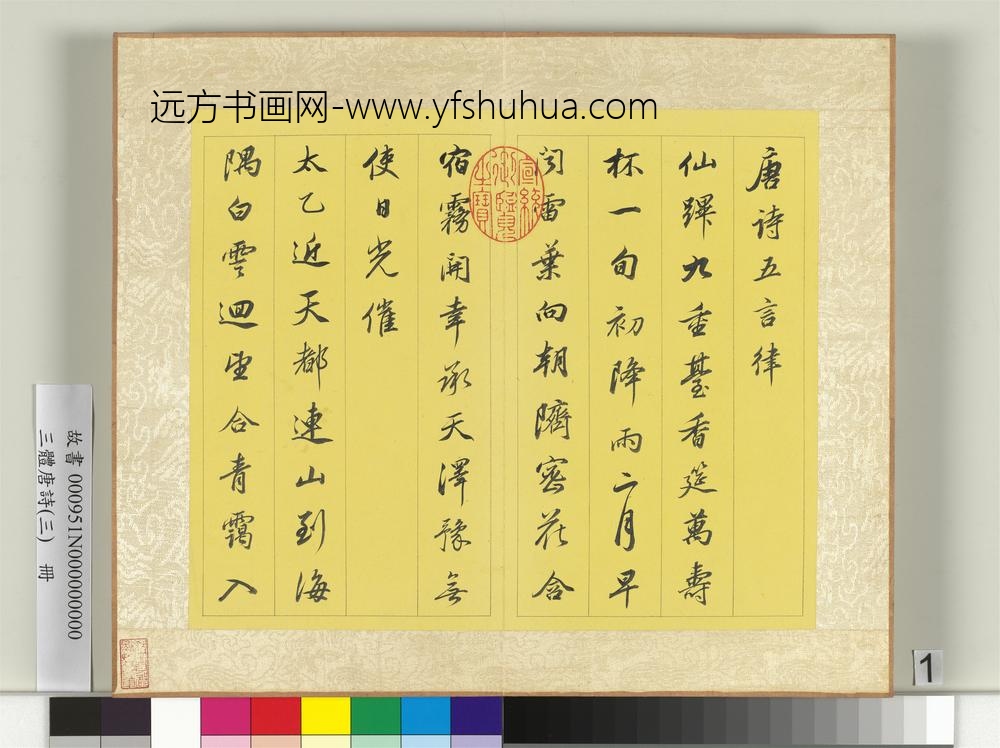 远方书画网-www.yfshuhua.com
唐詩五言律
仙蹕九重臺香筵萬壽
杯一旬初降雨二月早
聞雷葉向朝隮密花含
宿霧開幸承天澤豫無
使日光催
太乙近天都連山到海
隅白雲迴望合青靄入
宣統御覽之寶
故書 000951N000000000
三體唐詩(三) 冊
1